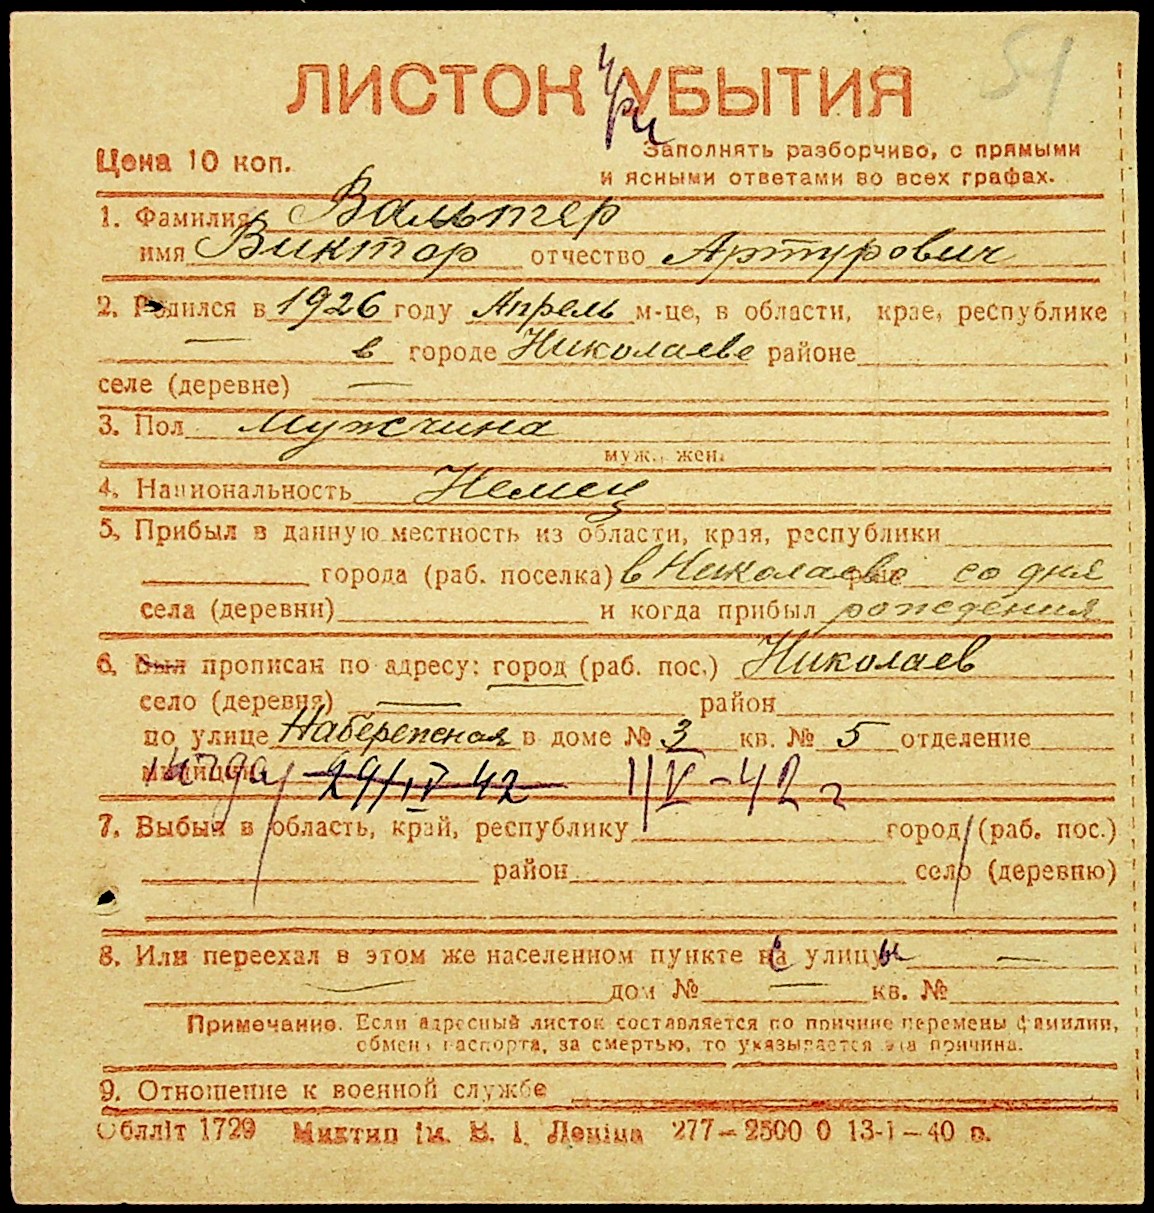 51
ЛИСТОК УБЫТИЯ
при
Цена 10 коп.
Заполнять разборчиво, с прямыми
и ясными ответами во всех графах.
1. Фамилия Вальтер
имя Виктор отчество Артурович
2. Родился в 1926 году Апрель м-це, в области, крае, республике
— в городе Николаеве районе
селе (деревне) —
3. Пол Мужчина
муж., жен.
4. Национальность Немец
5. Прибыл в данную местность из области, края, республики
города (раб. поселка) в Николаеве со дня
села (деревни) и когда прибыл рождения
6. Был прописан по адресу: город (раб. пос.) Николаев
село (деревня) — район
по улице Набережная в доме № 3 кв. № 5 отделение
милиции 29/IV 42 1/V-42 г
7. Выбыл в область, край, республику город (раб. пос.)
район село (деревню)
8. Или переехал в этом же населенном пункте с улицы —
— дом № — кв. №
Примечание. Если адресный листок составляется по причине перемены фамилии,
обмена паспорта, за смертью, то указывается эта причина.
9. Отношение к военной службе
Облліт 1729 Миктип ім. В. І. Леніна 277—2500 0 13-1—40 р.